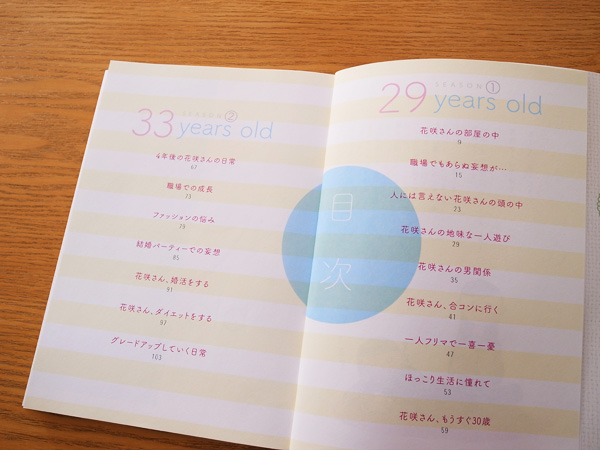 SEASON①
29 years old
花咲さんの部屋の中
9
職場でもあらぬ妄想が…
15
人には言えない花咲さんの頭の中
23
花咲さんの地味な一人遊び
29
花咲さんの男関係
35
花咲さん、合コンに行く
41
一人フリマで一喜一憂
47
ほっこり生活に憧れて
53
花咲さん、もうすぐ30歳
59
目次
SEASON②
33 years old
4年後の花咲さんの日常
67
職場での成長
73
ファッションの悩み
79
結婚パーティーでの妄想
85
花咲さん、婚活をする
91
花咲さん、ダイエットをする
97
グレードアップしていく日常
103